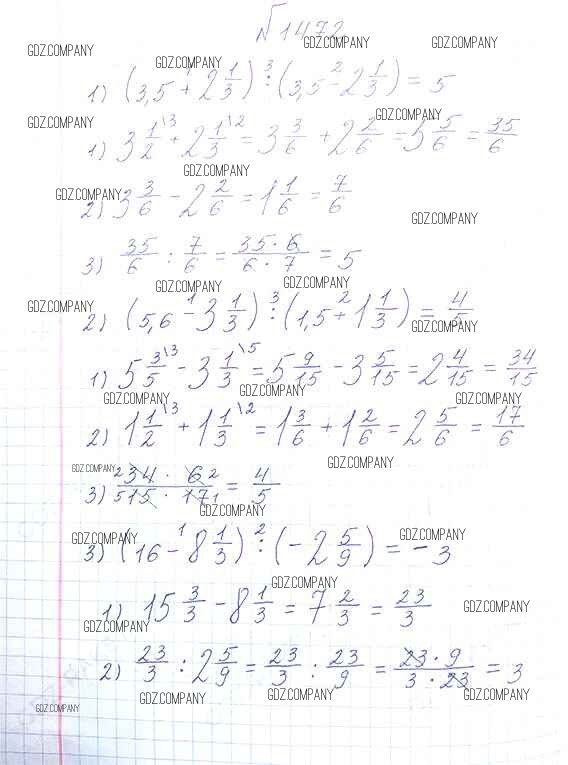 №1472
GDZ.COMPANY GDZ.COMPANY GDZ.COMPANY
GDZ.COMPANY
1) (3,5 + 2 1/3) : (3,5 - 2 1/3) = 5
GDZ.COMPANY GDZ.COMPANY
1) 3 1/2 \3 + 2 1/3 \2 = 3 3/6 + 2 2/6 = 5 5/6 = 35/6
GDZ.COMPANY
GDZ.COMPANY
2) 3 3/6 - 2 2/6 = 1 1/6 = 7/6
GDZ.COMPANY
3) 35/6 : 7/6 = 35·6/6·7 = 5
GDZ.COMPANY GDZ.COMPANY
GDZ.COMPANY
2) (5,6 - 3 1/3) : (1,5 + 1 1/3) = 4/5
GDZ.COMPANY
1) 5 3/5 \3 - 3 1/3 \5 = 5 9/15 - 3 5/15 = 2 4/15 = 34/15
GDZ.COMPANY GDZ.COMPANY GDZ.COMPANY
2) 1 1/2 \3 + 1 1/3 \2 = 1 3/6 + 1 2/6 = 2 5/6 = 17/6
GDZ.COMPANY GDZ.COMPANY
3) 2 34 · 6 2/5 15 · 17 1 = 4/5
GDZ.COMPANY
GDZ.COMPANY GDZ.COMPANY
3) (16 - 8 1/3) : (-2 5/9) = -3
GDZ.COMPANY
1) 15 3/3 - 8 1/3 = 7 2/3 = 23/3
GDZ.COMPANY GDZ.COMPANY
2) 23/3 : 2 5/9 = 23/3 : 23/9 = 23·9/3·23 = 3
GDZ.COMPANY GDZ.COMPANY GDZ.COMPANY
GDZ.COMPANY